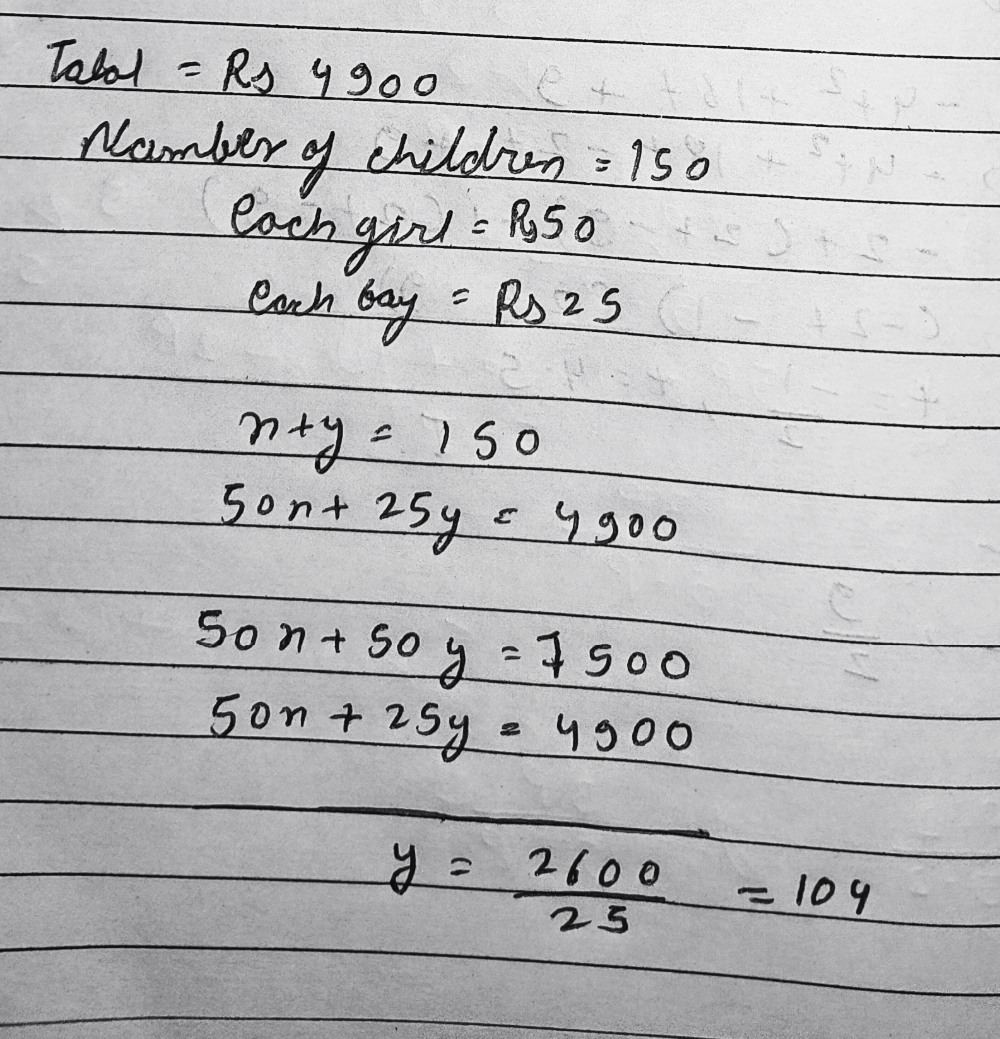 Total = Rs 4900
Number of children = 150
Each girl = Rs 50
Each boy = Rs 25
x+y = 150
50x + 25y = 4900
50x + 50y = 7500
50x + 25y = 4900
y = 2600/25 = 104